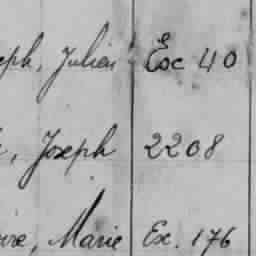 eph, Julien Exc 40
, Joseph 2208
ire, Marie Ex. 176